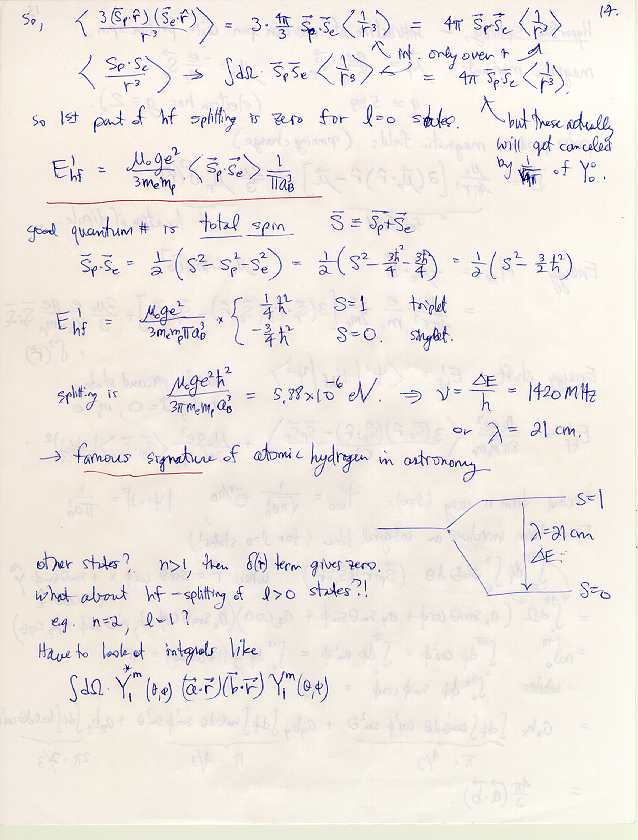 14.
So, ⟨ 3(S⃗p·r̂)(S⃗e·r̂) / r³ ⟩ = 3 · 4π/3 S⃗p·S⃗e ⟨1/r³⟩ = 4π S⃗p·S⃗e ⟨1/r³⟩
int. only over r
⟨ S⃗p·S⃗e / r³ ⟩ → ∫dΩ · S⃗p·S⃗e ⟨1/r³⟩ = 4π S⃗p·S⃗e ⟨1/r³⟩.
so 1st part of hf splitting is zero for l=0 states.
but these actually
will get canceled
by 1/4π of Y₀⁰.
E¹hf = μ₀ge²/3memp ⟨ S⃗p·S⃗e ⟩ 1/πa_B³
good quantum # is total spin S⃗ ≡ S⃗p+S⃗e
S⃗p·S⃗e = 1/2 (S² − Sp² − Se²) = 1/2 (S² − 3ħ²/4 − 3ħ²/4) = 1/2 (S² − 3/2 ħ²)
E¹hf = μ₀ge²/3mempπa_B³ × { 1/4 ħ² S=1 triplet
−3/4 ħ² S=0. singlet.
splitting is μ₀ge²ħ²/3πmempa_B³ = 5.88×10⁻⁶ eV. ⇒ ν = ΔE/h = 1420 MHz
or λ = 21 cm.
→ famous signature of atomic hydrogen in astronomy
S=1
λ=21cm
ΔE
S=0
other states? n>1, then δ(r) term gives zero.
what about hf-splitting of l>0 states?!
e.g. n=2, l=1?
Have to look at integrals like
∫dΩ · Y₁ᵐ*(θ,φ) (a⃗·r⃗)(b⃗·r⃗) Y₁ᵐ(θ,φ)